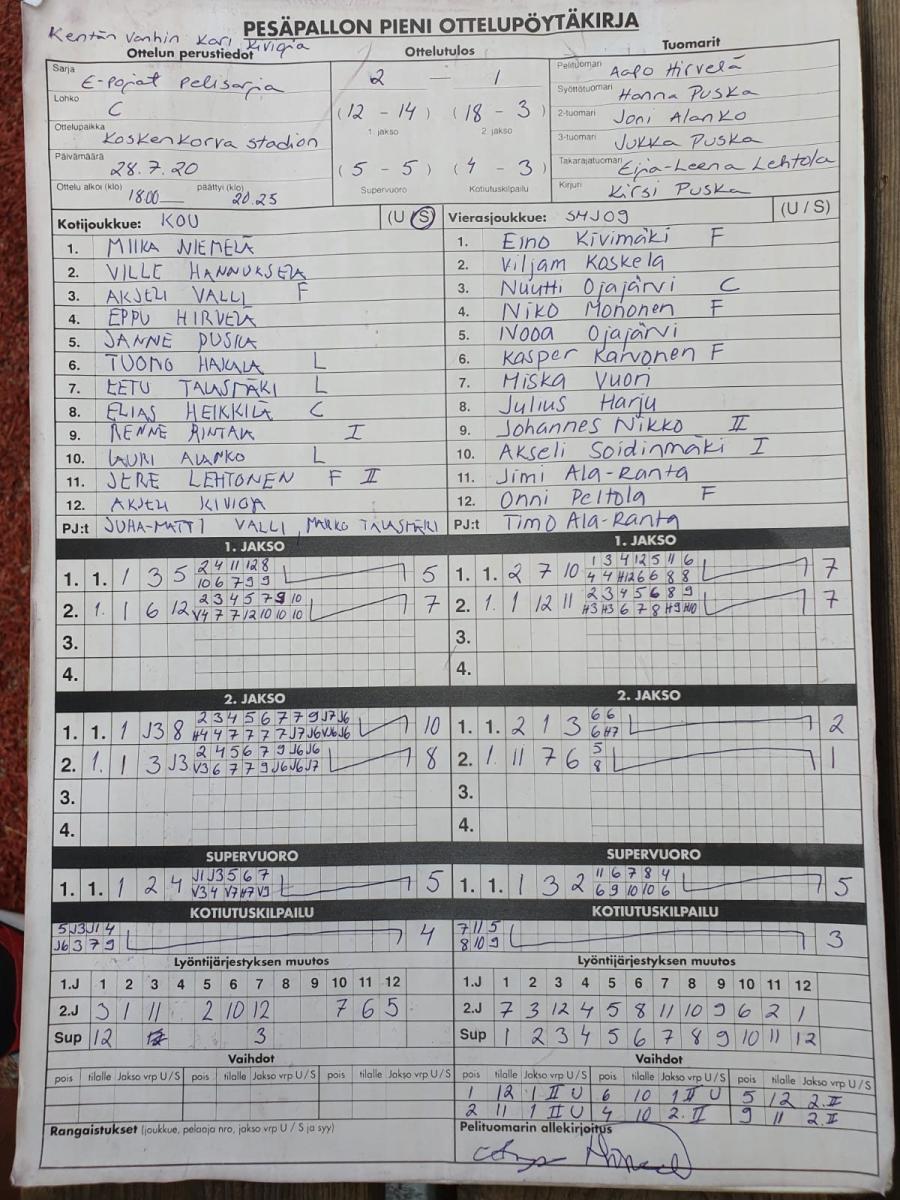 PESÄPALLON PIENI OTTELUPÖYTÄKIRJA
Kentän vanhin Kari Kivioja
Ottelun perustiedot Ottelutulos Tuomarit
Sarja E-pojat pelisarja
Lohko C
Ottelupaikka Koskenkorva stadion
Päivämäärä 28.7.20
Ottelu alkoi (klo) 18.00 päättyi (klo) 20.25
2 — 1
(12 - 14) (18 - 3)
1. jakso 2. jakso
(5 - 5) (4 - 3)
Supervuoro Kotiutuskilpailu
Pelituomari Aapo Hirvelä
Syöttötuomari Hanna Puska
2-tuomari Joni Alanko
3-tuomari Jukka Puska
Takarajatuomari Eija-Leena Lehtola
Kirjuri Kirsi Puska
Kotijoukkue: KOU (U / S) Vierasjoukkue: SMJ09 (U / S)
1. MIIKA NIEMELÄ
2. VILLE HANNUKSELA
3. AKSELI VALLI F
4. EPPU HIRVELÄ
5. JANNE PUSKA
6. TUOMO HAKALA L
7. EETU TALASMÄKI L
8. ELIAS HEIKKILÄ C
9. RENNE RINTALA I
10. LAURI ALANKO L
11. JERE LEHTONEN F II
12. AKSELI KIVIOJA
PJ:t JUHA-MATTI VALLI, MARKO TALASMÄKI
1. Eino Kivimäki F
2. Viljam Koskela
3. Nuutti Ojajärvi C
4. Niko Mononen F
5. Nooa Ojajärvi
6. Kasper Karvonen F
7. Miska Vuori
8. Julius Harju
9. Johannes Nikko II
10. Akseli Soidinmäki I
11. Jimi Ala-Ranta
12. Onni Peltola F
PJ:t Timo Ala-Ranta
1. JAKSO 1. JAKSO
1. 1. 1 3 5 2 4 11 12 8 5
10 6 7 9 9
2. 1. 1 6 12 2 3 4 5 7 9 10 7
V4 7 7 12 10 10 10
3.
4.
1. 1. 2 7 10 1 3 4 12 5 11 6 7
4 4 H12 6 6 8 8
2. 1. 1 12 11 2 3 4 5 6 8 9 7
H3 H3 6 7 8 H9 H10
3.
4.
2. JAKSO 2. JAKSO
1. 1. 1 J3 8 2 3 4 5 6 7 7 9 J7 J6 10
H4 4 7 7 7 7 J7 J6 VJ6 J6
2. 1. 1 3 J3 2 4 5 6 7 9 J6 J6 8
V3 6 7 7 9 J6 J6 J7
3.
4.
1. 1. 2 1 3 6 6 2
6 H7
2. 1. 11 7 6 5 1
8
3.
4.
SUPERVUORO SUPERVUORO
1. 1. 1 2 4 J1 J3 5 6 7 5
V3 4 V7 H7 V9
1. 1. 1 3 2 11 6 7 8 4 5
6 9 10 10 6
KOTIUTUSKILPAILU KOTIUTUSKILPAILU
5 J3 J1 4 4
J6 3 7 9
7 11 5 3
8 10 9
Lyöntijärjestyksen muutos Lyöntijärjestyksen muutos
1.J 1 2 3 4 5 6 7 8 9 10 11 12 1 2 3 4 5 6 7 8 9 10 11 12
2.J 3 1 11 2 10 12 7 6 5 2.J 7 3 12 4 5 8 11 10 9 6 2 1
Sup 12 3 Sup 1 2 3 4 5 6 7 8 9 10 11 12
Vaihdot Vaihdot
pois tilalle Jakso vrp U / S pois tilalle Jakso vrp U / S pois tilalle Jakso vrp U / S pois tilalle Jakso vrp U / S pois tilalle Jakso vrp U / S pois tilalle Jakso vrp U / S
1 12 1 II U 6 10 1 II U 5 12 2. II
2 11 1 II U 4 10 2. II 9 11 2. II
Rangaistukset (joukkue, pelaaja nro, jakso vrp U / S ja syy) Pelituomarin allekirjoitus